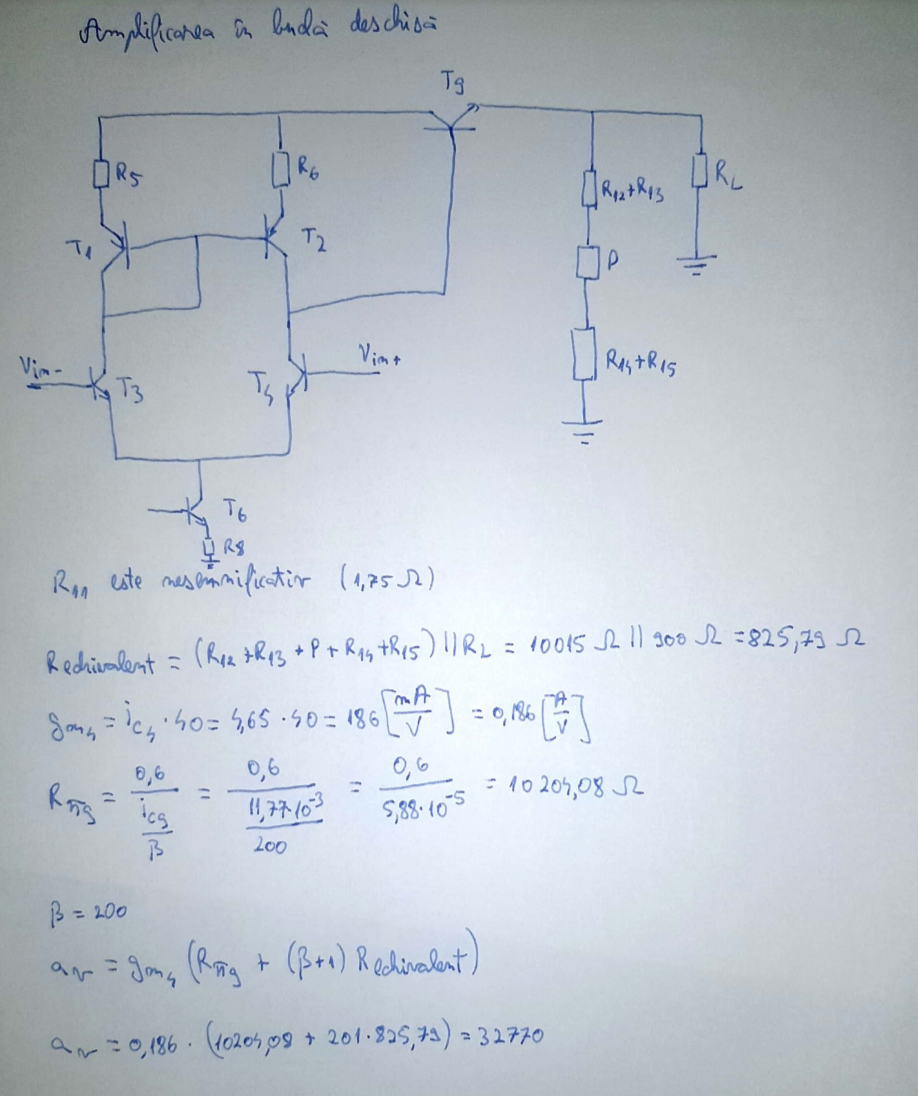 Amplificarea în buclă deschisă
T9
R5
R6
R12+R13
RL
T1
T2
P
Vin-
T3
T4
Vin+
R14+R15
T6
R8
R11 este nesemnificativ (1,75 Ω)
Rechivalent = (R12+R13+P+R14+R15) || RL = 10015 Ω || 900 Ω = 825,79 Ω
gm4 = ic4 · 40 = 4,65 · 40 = 186 [mA/V] = 0,186 [A/V]
Rπ9 = 0,6/(ic9/β) = 0,6/(11,77·10^-3/200) = 0,6/(5,88·10^-5) = 10204,08 Ω
β = 200
av = gm4 (Rπ9 + (β+1) Rechivalent)
av = 0,186 · (10204,08 + 201·825,79) = 32770